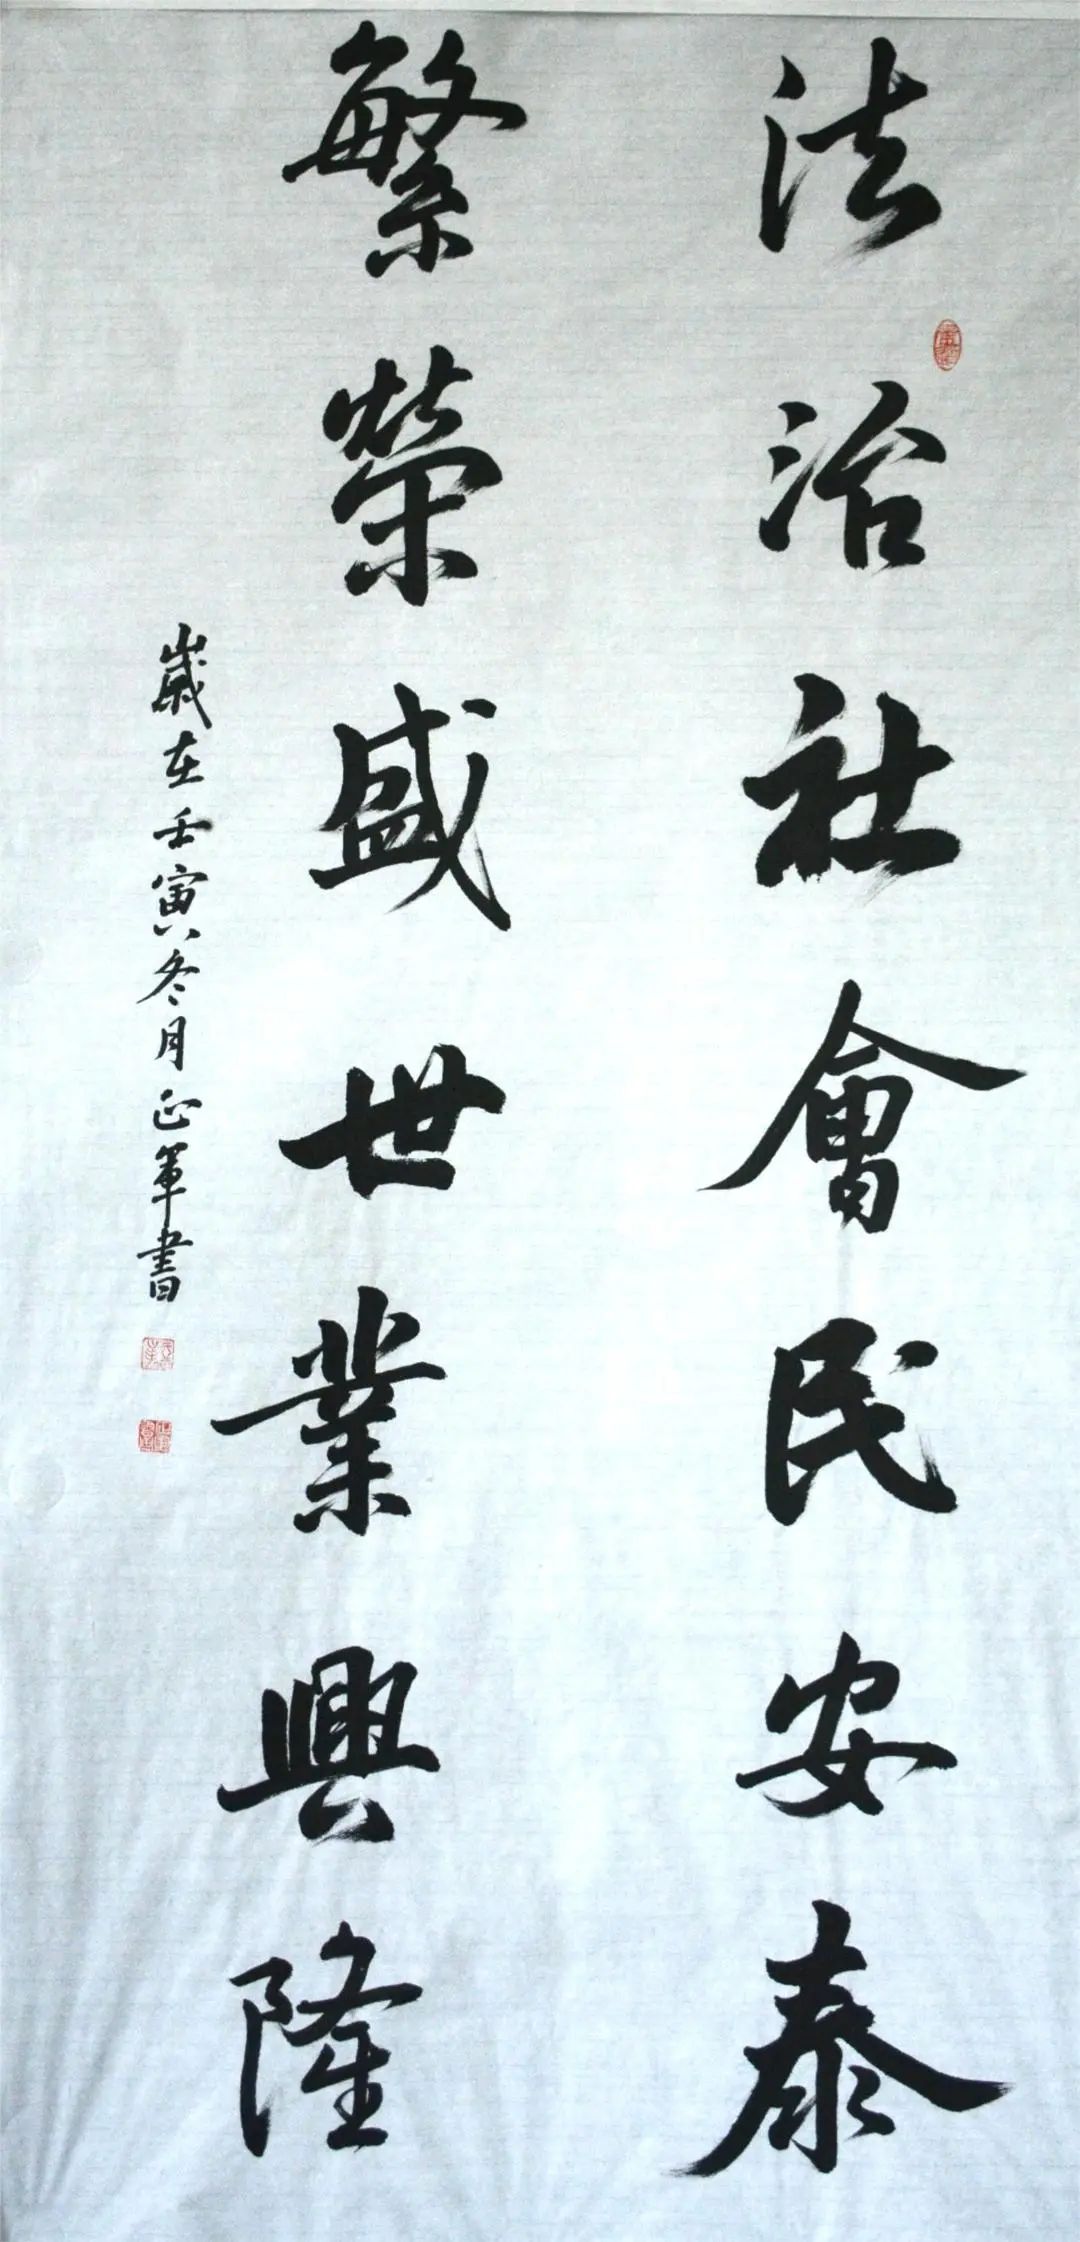 法治社會民安泰
繁榮盛世業興隆
歲在壬寅冬月正軍書